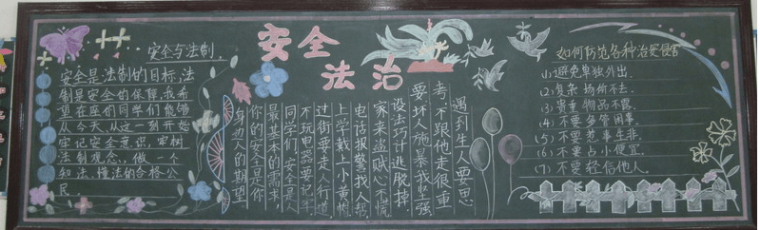 安全与法制.
安全是法制的目标,法
制是安全的保障,我希
望在座的同学们能够
从今天,从这一刻开始
牢记安全意识,牢树
法制观念,做一个
知法、懂法的合格公
民.
安全
法治
遇到生人要思
考,不跟他走很重
要,坏施暴我坚强
设法巧计逃脱掉,
家来盗贼人不慌
电话报警找人帮,
上学戴上小黄帽
过街要走人行道,
不玩电器要记牢
同学们,安全是人
最基本的需求,
你的安全是你
身边人的期望
如何防范各种治安侵害
(1)避免单独外出.
(2)复杂场所不去.
(3)贵重物品不露.
(4)不要多管闲事
(5)不要惹事生非.
(6)不要占小便宜.
(7)不要轻信他人.